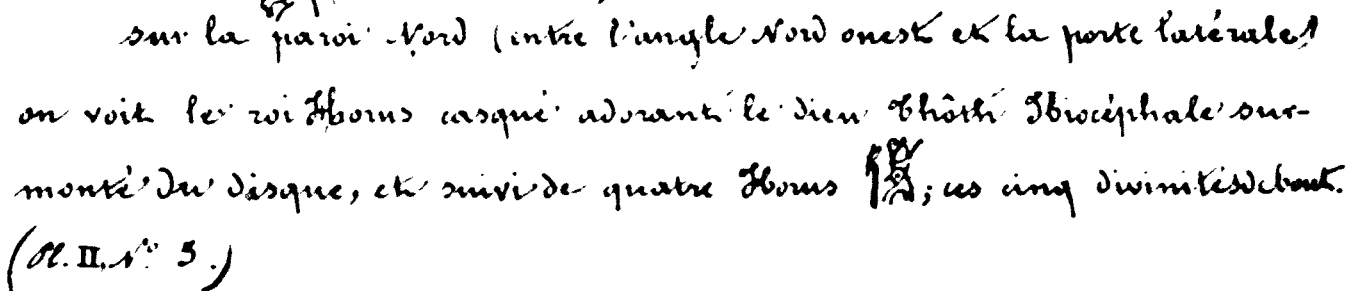 sur la paroi Nord (entre l'angle Nord ouest et la porte latérale)
on voit le roi Horus casqué adorant le dieu Thôth Ibiocéphale sur-
monté du disque, et suivi de quatre Horus ; ces cinq divinités debout.
(Pl. II. N° 3.)